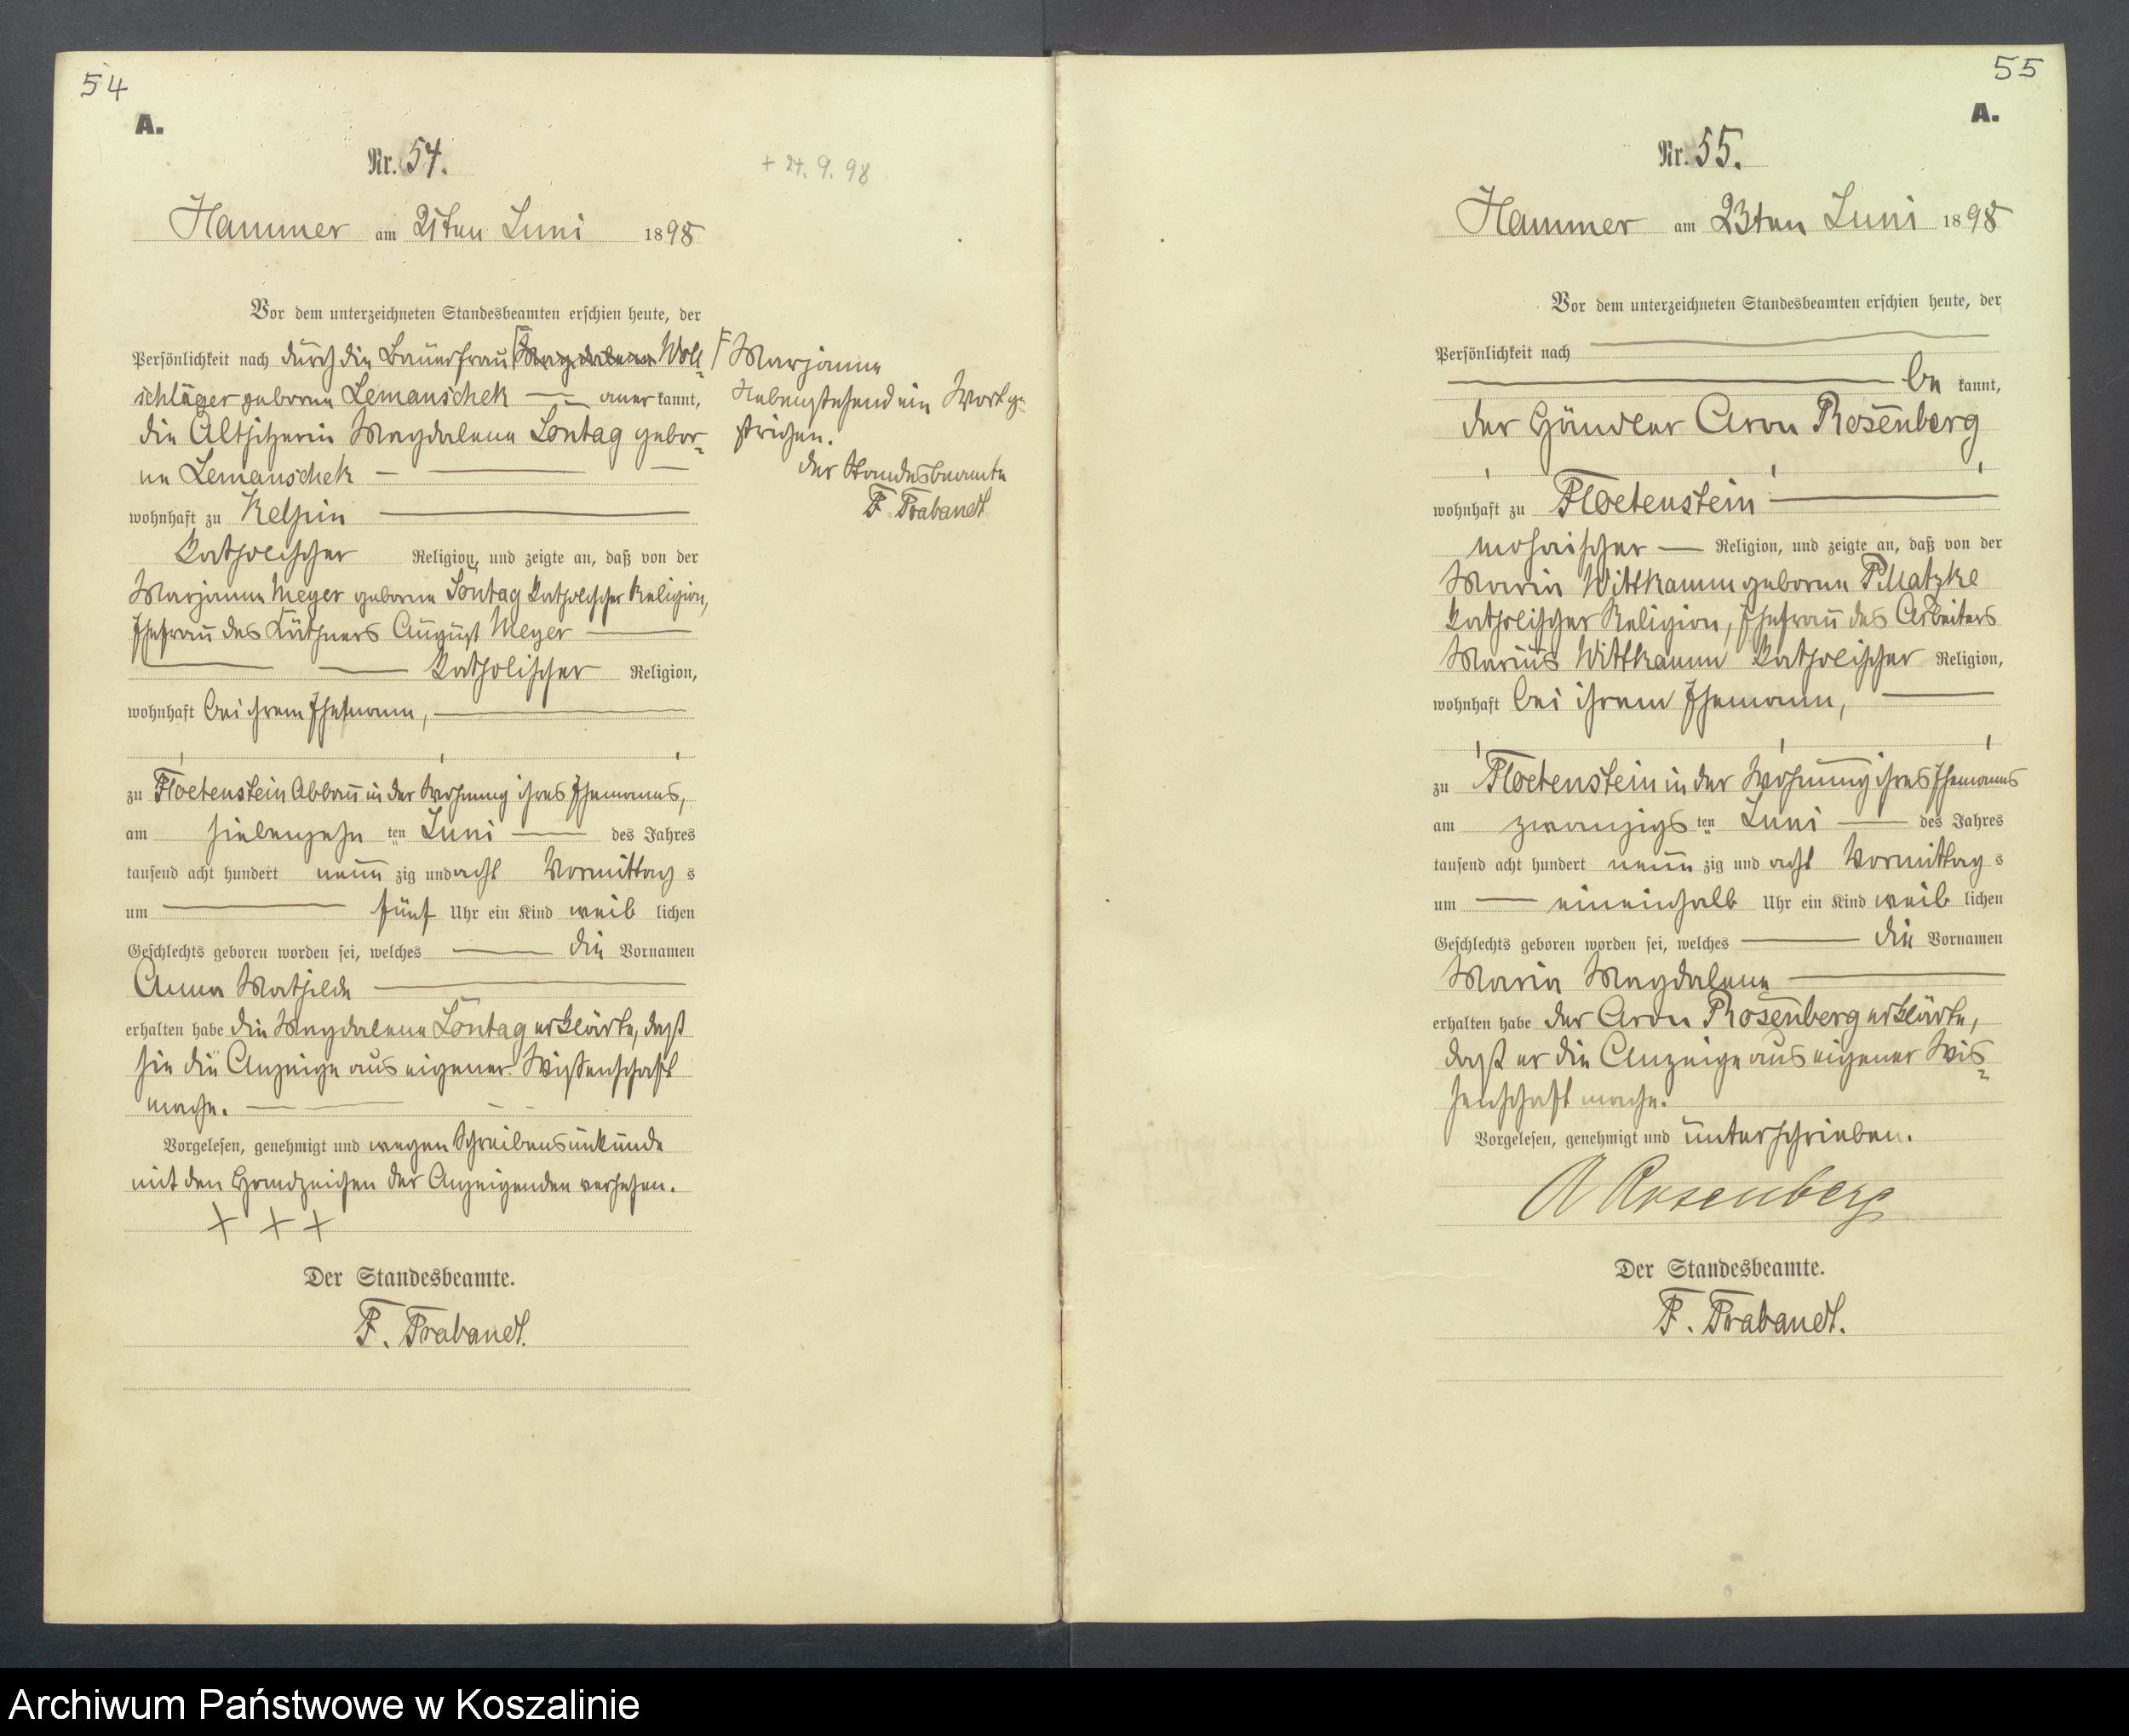 54
A.
Nr. 54.
+ 24. 9. 98
Hammer am 21ten Juni 1898
Vor dem unterzeichneten Standesbeamten erschien heute, der
Persönlichkeit nach durch die Bauerfrau Γ Magdalena Woll-
schläger geborne Lemanschek anerkannt,
die Altsitzerin Magdalena Sontag gebor-
ne Lemanschek
wohnhaft zu Kelpin
katholischer Religion, und zeigte an, daß von der
Marjanna Meyer geborne Sontag katholischer Religion,
Ehefrau des Käthners August Meyer
katholischer Religion,
wohnhaft bei ihrem Ehemann,
zu Floetenstein Abbau in der Wohnung ihres Ehemannes,
am siebenzehn ten Juni des Jahres
tausend acht hundert neun zig und acht Vormittag s
um fünf Uhr ein Kind weib lichen
Geschlechts geboren worden sei, welches die Vornamen
Anna Mathilde
erhalten habe die Magdalena Sontag erklärte, daß
sie die Anzeige aus eigener Wissenschaft
mache.
Vorgelesen, genehmigt und wegen Schreibensunkunde
mit den Handzeichen der Anzeigenden versehen.
+ + +
Der Standesbeamte.
F. Trabandt.
Γ Marjanna
Nebenstehend ein Wort ge-
strichen.
Der Standesbeamte
F. Trabandt
55
A.
Nr. 55.
Hammer am 23ten Juni 1898
Vor dem unterzeichneten Standesbeamten erschien heute, der
Persönlichkeit nach
be kannt,
der Händler Aron Rosenberg
wohnhaft zu Floetenstein
mosaischer Religion, und zeigte an, daß von der
Maria Wittkamm geborne Pillatzke
katholischer Religion, Ehefrau des Arbeiters
Marius Wittkamm katholischer Religion,
wohnhaft bei ihrem Ehemann,
zu Floetenstein in der Wohnung ihres Ehemannes
am zwanzigs ten Juni des Jahres
tausend acht hundert neun zig und acht Vormittag s
um eineinhalb Uhr ein Kind weib lichen
Geschlechts geboren worden sei, welches die Vornamen
Maria Magdalena
erhalten habe der Aron Rosenberg erklärte,
daß er die Anzeige aus eigener Wis-
senschaft mache.
Vorgelesen, genehmigt und unterschrieben.
A Rosenberg
Der Standesbeamte.
F. Trabandt.
Archiwum Państwowe w Koszalinie